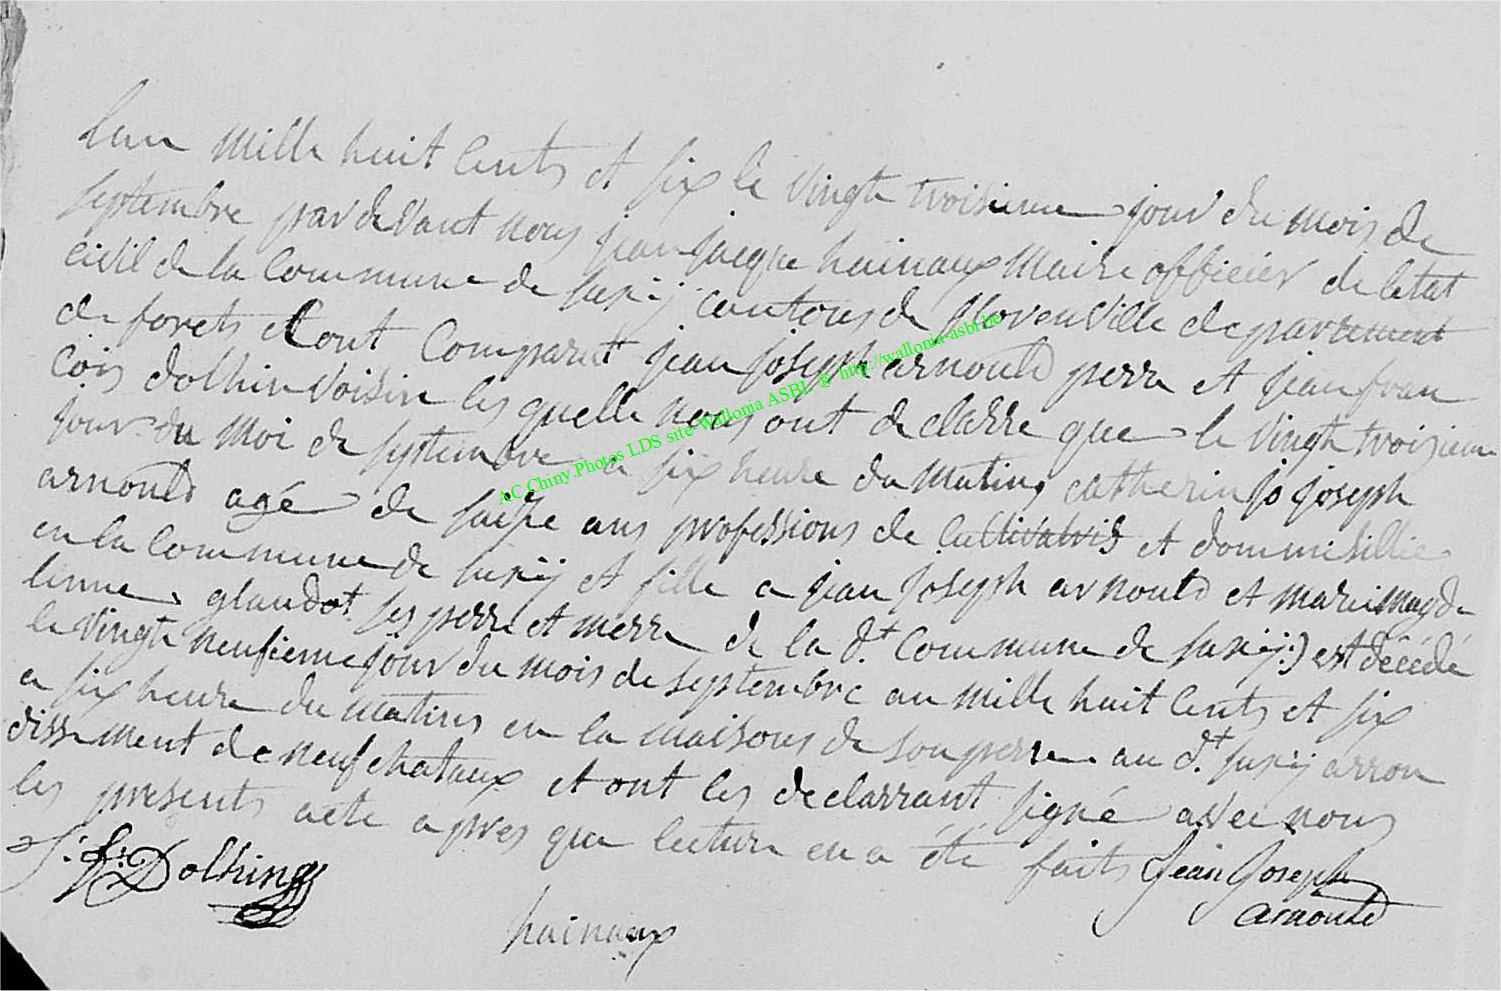 Lan mille huit Cents et six le vingte troisieme jour du mois de
septembre par devant nous jean jacque hainaux Maire officier de letat
civil de la Commune de suxÿ cantons de florenville departement
de forets Sont Comparut jean joseph arnould perre et jean fran
cois dolhin voisin les quelle nous ont declarre que le vingt troisieme
jour du moi de septembre a six heure du mating catherin jo joseph
arnould agé de saise ans professions de Cultivatris et dommisillie
en la Commune de suxÿ et fille a jean joseph arnould et marie magde
lenne glaudot ses perre et merre de la d.t Commune de suxÿ :) est décédé
le vingte neufieme jour du mois de septembre an mille huit Cents et six
a six heure du matins en la maisons de son perre au d.t suxÿ arron
dissement de neufchataux et ont les declarrant signé avec nous
les presents acte apres que lecture en a éte faits Jean Joseph
arnould
J. f. Dolhing
hainaux
AC Chiny.Photos LDS site Wallonia ASBL @ http://wallonia-asbl.be